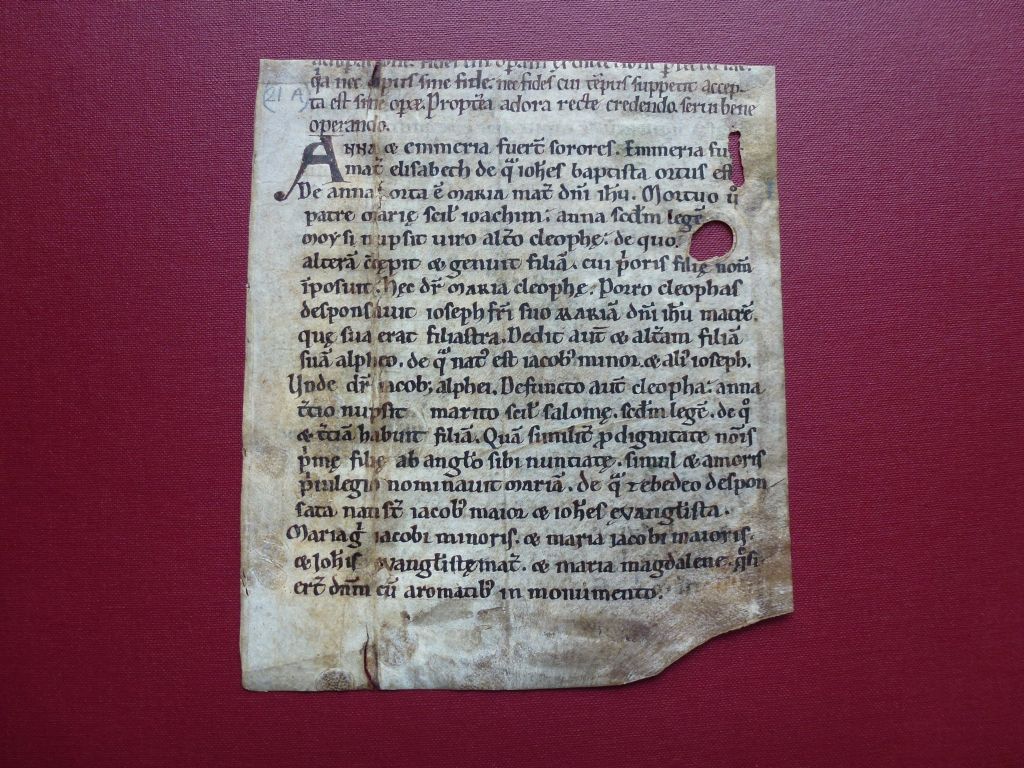 (21 A)
q̄a nec tp̄us sine fide. nec fides cui tēpus suppetit accep
ta est sine ope̢. Propt̄ea adora recte credendo. serui bene
operando.
ANNA & emmeria fuer̄t sorores. Emmeria fu
mat̄ elisabech de qͣ ioh̄es baptista ortus est
De anna orta ē maria mat̄ dn̄i ih̄u. Mortuo ů
patre marię scil᷎ ioachim: anna scd̄m legē
moẏsi nupsit uiro alt̄o cleophę: de quo.
alterā c̄cepit & genuit filiā. cui p͛oris filię nom̄
īposuit. hęc dr̄ maria cleophę. Porro cleophas
desponsauit ioseph fr̄i suo mariā dn̄i ih̄u matrē.
quę sua erat filiastra. Dedit aut̄ & alt̄am filiā
suā alpheo. de qͣ nat᷒ est iacob᷒ minor. & ali᷒ ioseph.
Unde dr̄ iacob; alphei. Defuncto aut̄ cleopha: anna
t̄cio nupsit marito scil᷎ salomę. scd̄m legē. de qͦ
& t̄ciā habuit filiā. Quā similit̄ ꝓ dignitate nōis
p͛mę filię ab angl̄o sibi nunciatę. simul & amoris
p͛uilegio nominauit mariā. de qͣ zebedeo despon
sata nati s̄t iacob᷒ maior & ioh̄es ęvangl̄ista.
Maria g͛ iacobi minoris. & maria iacobi maioris.
& Joh̄is evangl̄istę mat̄. & maria magdalene. qͦsi
er̄t dn̄m cū aromatib᷒ in monumento.